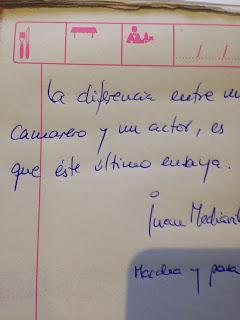 La diferencia entre un
camarero y un actor, es
que éste último ensaya.
Juan
y para